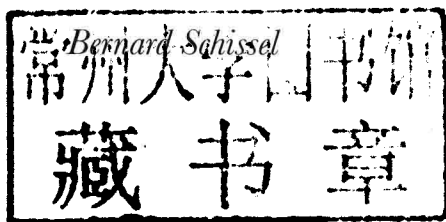 Bernard Schissel
常州大学图书馆
藏书章